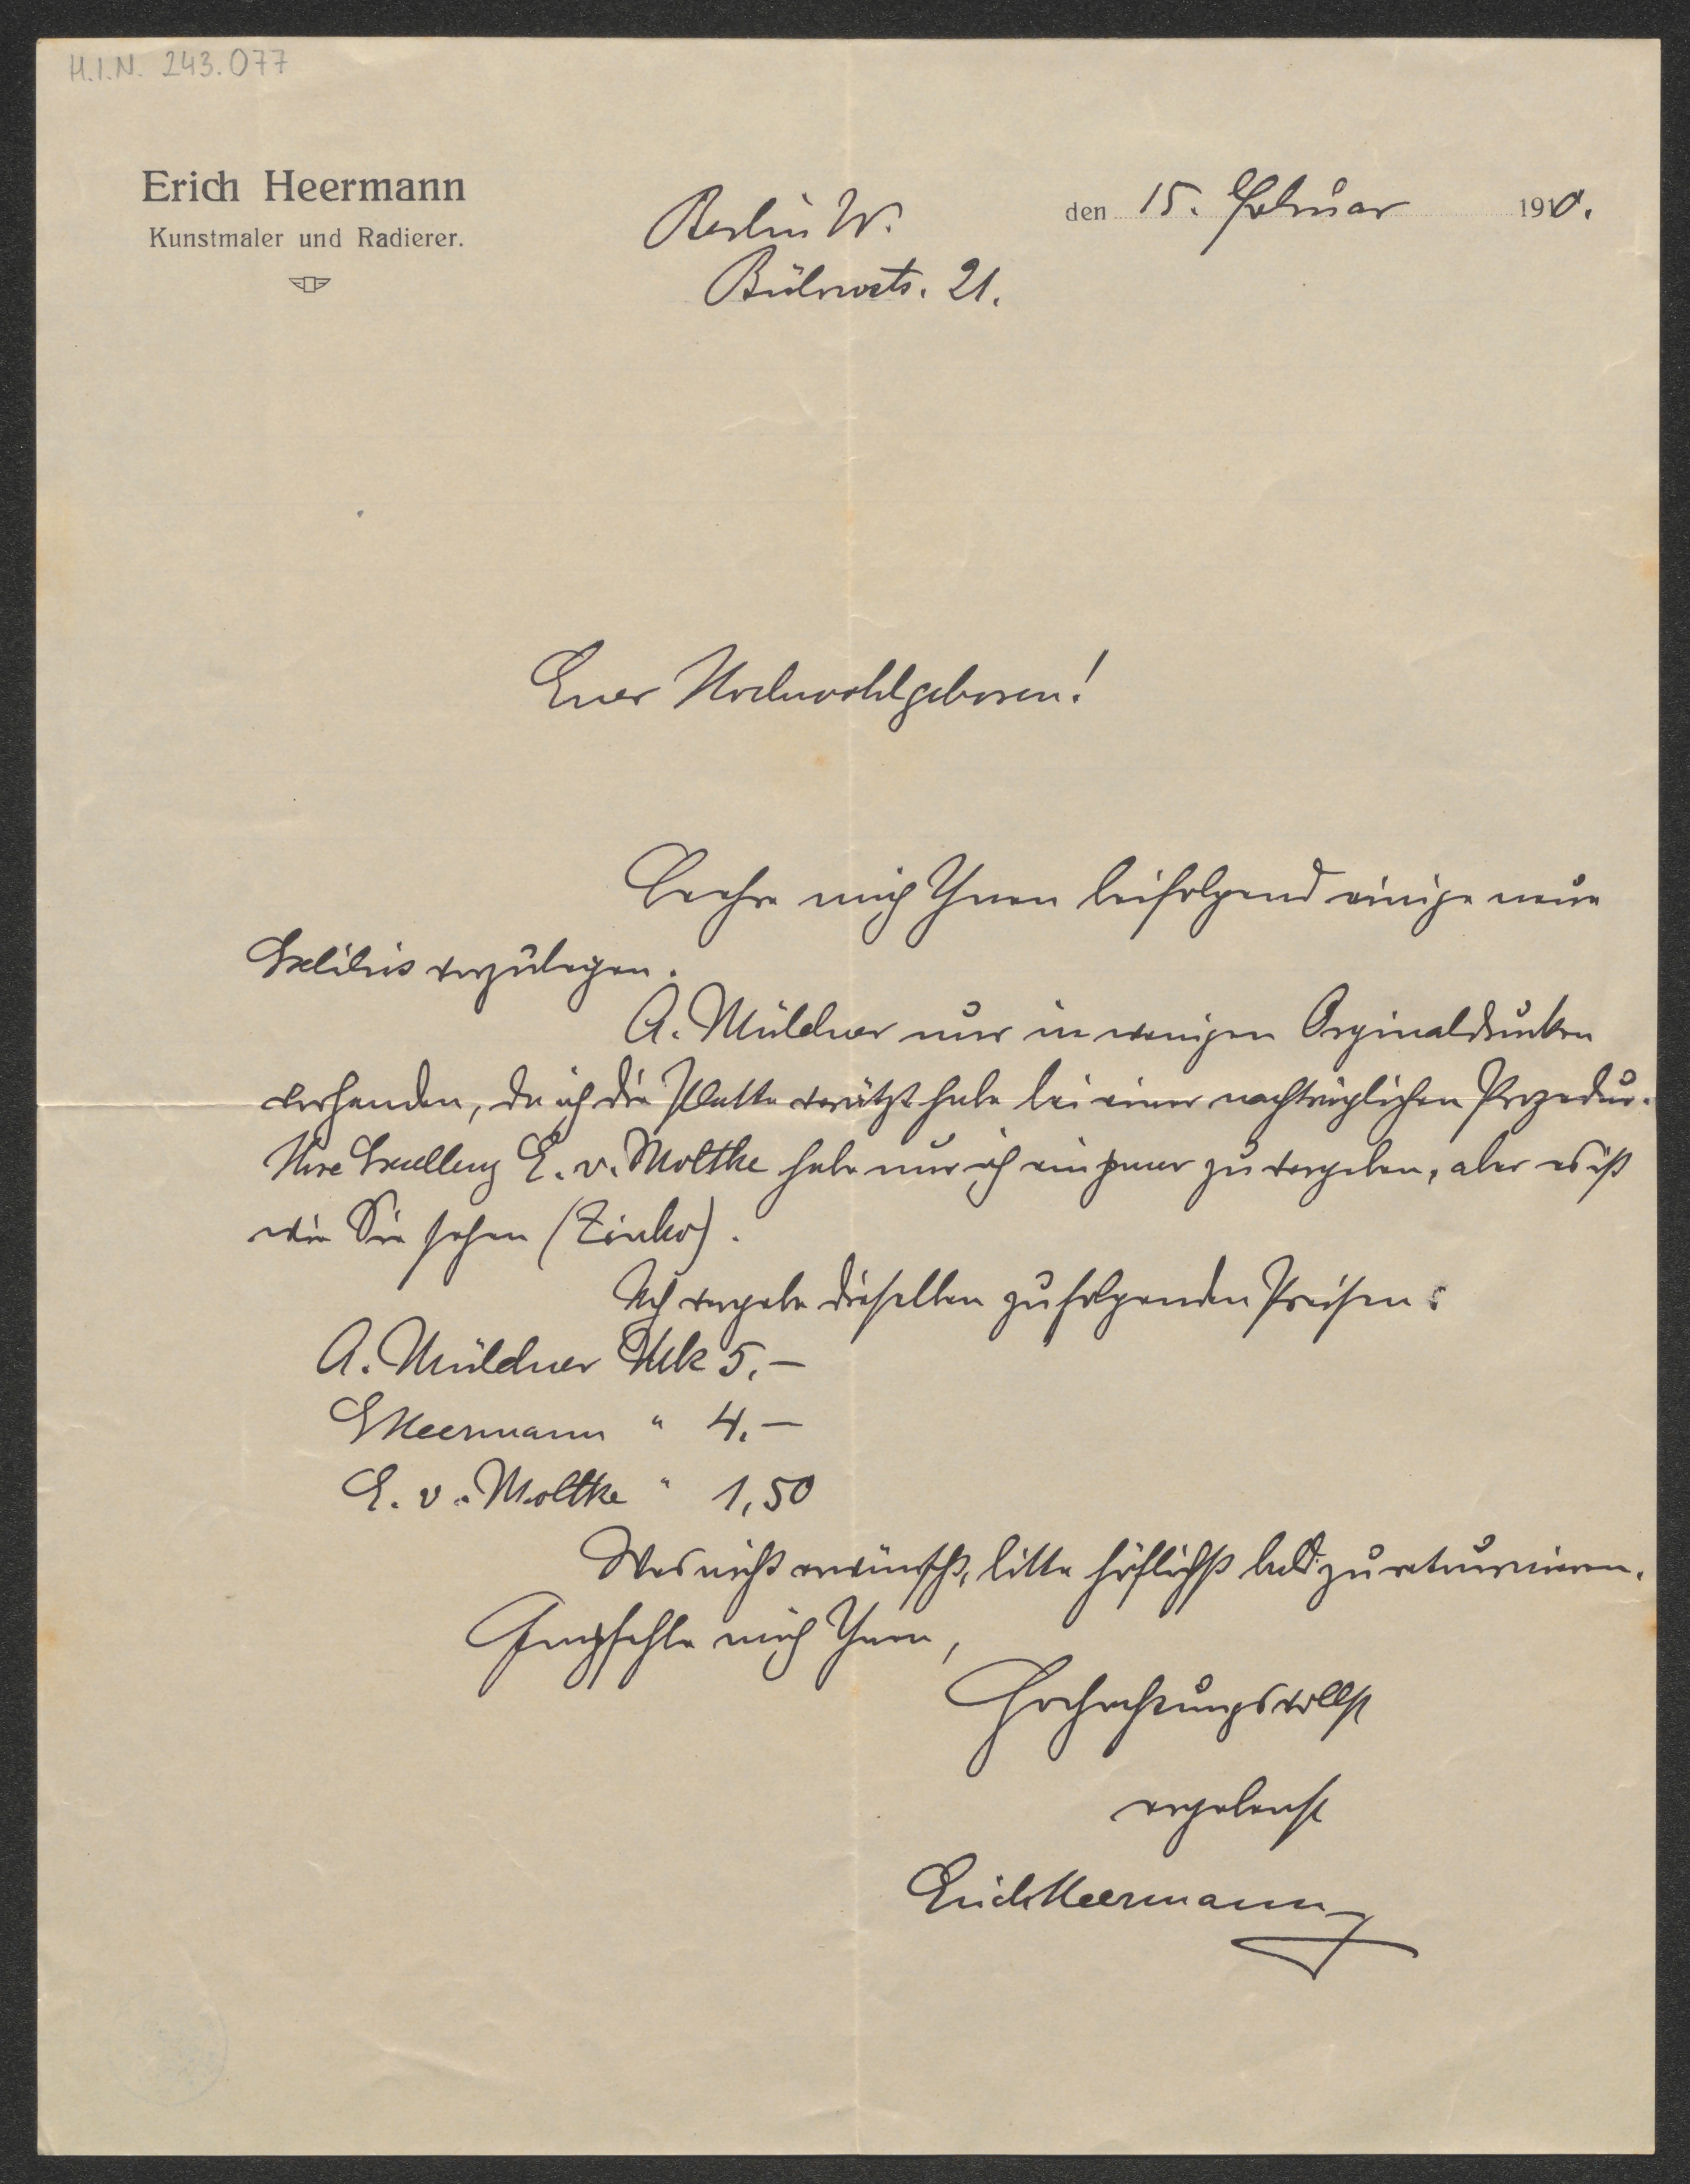 H.I.N. 243.077
Erich Heermann
Kunstmaler und Radierer.
Berlin W.
Bülowstr. 21.
den 15. Februar 1910.
Euer Hochwohlgeboren!
Beehre mich Ihnen beifolgend einige neue
Exlibris vorzulegen.
A. Müldner nur in wenigen Orginaldrucken
vorhanden, da ich die Platte verätzt habe bei einer nachträglichen Prozedur.
Ihre Excellenz E. v. Moltke habe nur ich ein paar zu vergeben, aber es ist
wie Sie sehen (Zinko).
Ich vergebe dieselben zu folgenden Preisen:
A. Müldner Mk 5.–
EHeermann " 4.–
E. v. Moltke " 1,50
Was nicht erwünscht, bitte höflichst bald zu retournieren.
Empfehle mich Ihnen,
Hochachtungsvollst
ergebenst
Erich Heermann